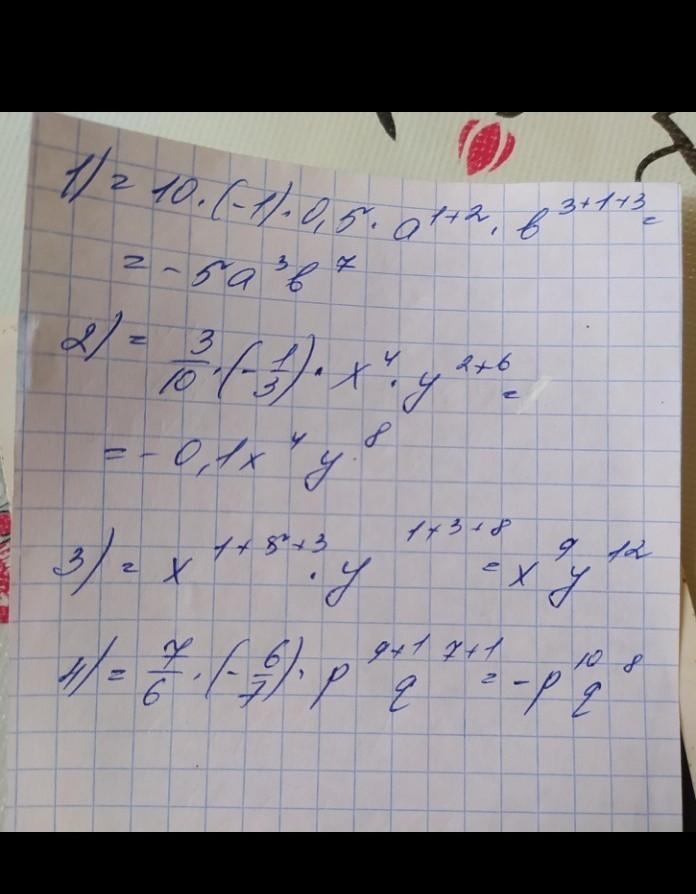 1) = 10 · (-1) · 0,5 · a^{1+2} · b^{3+1+3} =
= -5a^3b^7
2) = 3/10 · (-1/3) · x^4 · y^{2+6} =
= -0,1x^4y^8
3) = x^{1+5+3} · y^{1+3+8} = x^9y^{12}
4) = 7/6 · (-6/7) · p^{9+1}q^{7+1} = -p^{10}q^8